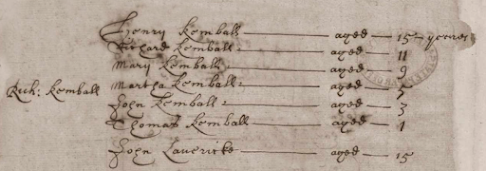 Henry Kemball —— aged — 15 yeeres
Richard Kemball —— aged — 11
Mary Kemball —— aged — 9
Rich: Kemball Martha Kemball —— aged — 5
John Kemball —— aged — 3
Thomas Kemball —— aged — 1
John Lauericke —— aged — 15